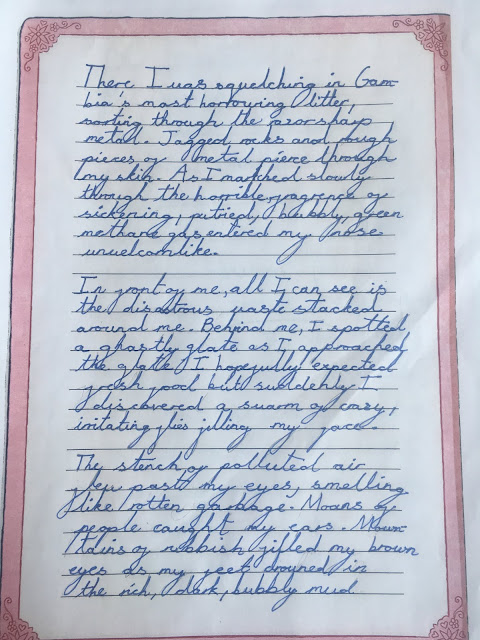 There I was squelching in Gam-
bia's most horrorying litter,
sorting through the razorsharp
metal. Jagged rocks and rough
pieces of metal pierce through
my skin. As I marched slowly
through the horrible fragrence of
sickening, putried, bubbly, green
methane gas entered my nose
unwelcomlike.
In front of me, all I can see is
the disastrous waste stacked
around me. Behind me, I spotted
a ghastly glate as I approached
the glate I hopefully expected
fresh food but suddenly I
discovered a swarm of crazy,
irritating flies filling my face.
The stench of polluted air
flew past my eyes, smelling
like rotten garbage. Moans of
people caught my ears. Moun-
tains of rubbish filled my brown
eyes as my feet drowned in
the rich, dark, bubbly mud.